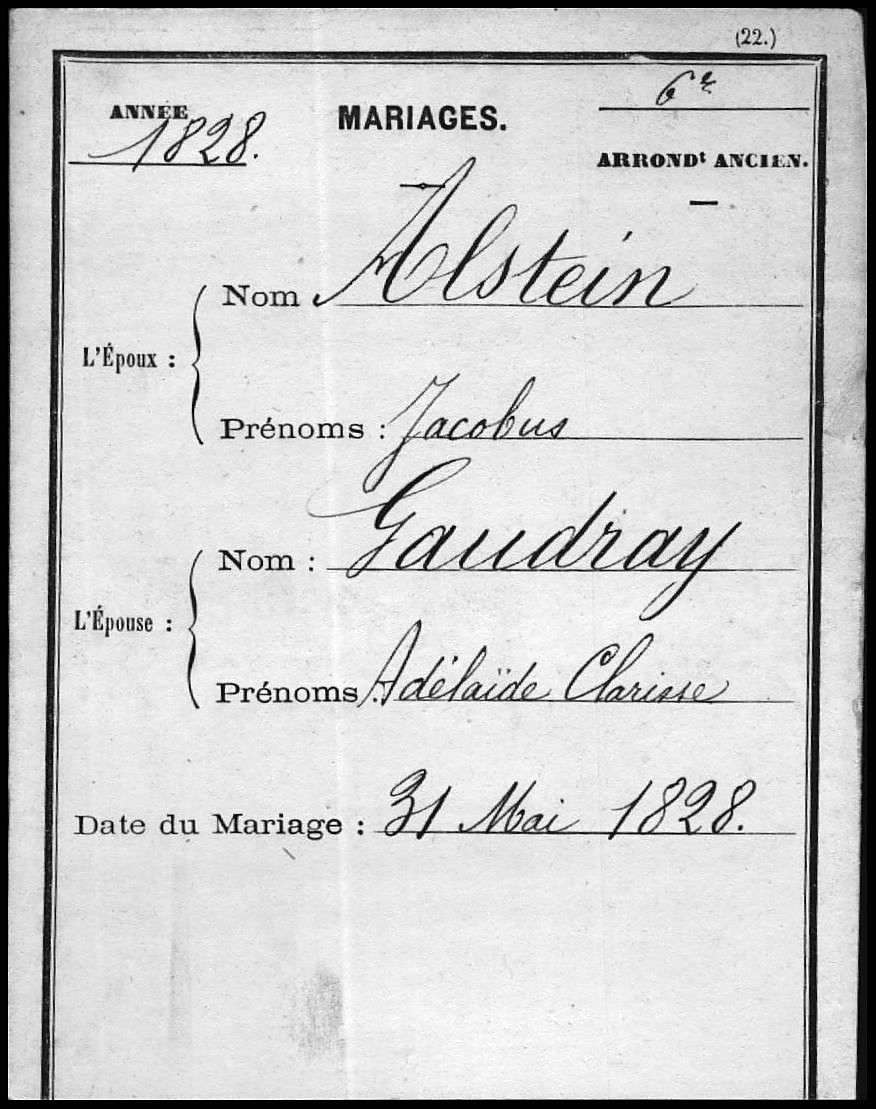 (22.)
ANNÉE
1828.
MARIAGES.
6e
ARRONDt ANCIEN.
L'Époux :
Nom Alstein
Prénoms : Jacobus
L'Épouse :
Nom : Gaudray
Prénoms Adélaïde Clarisse
Date du Mariage : 31 Mai 1828.